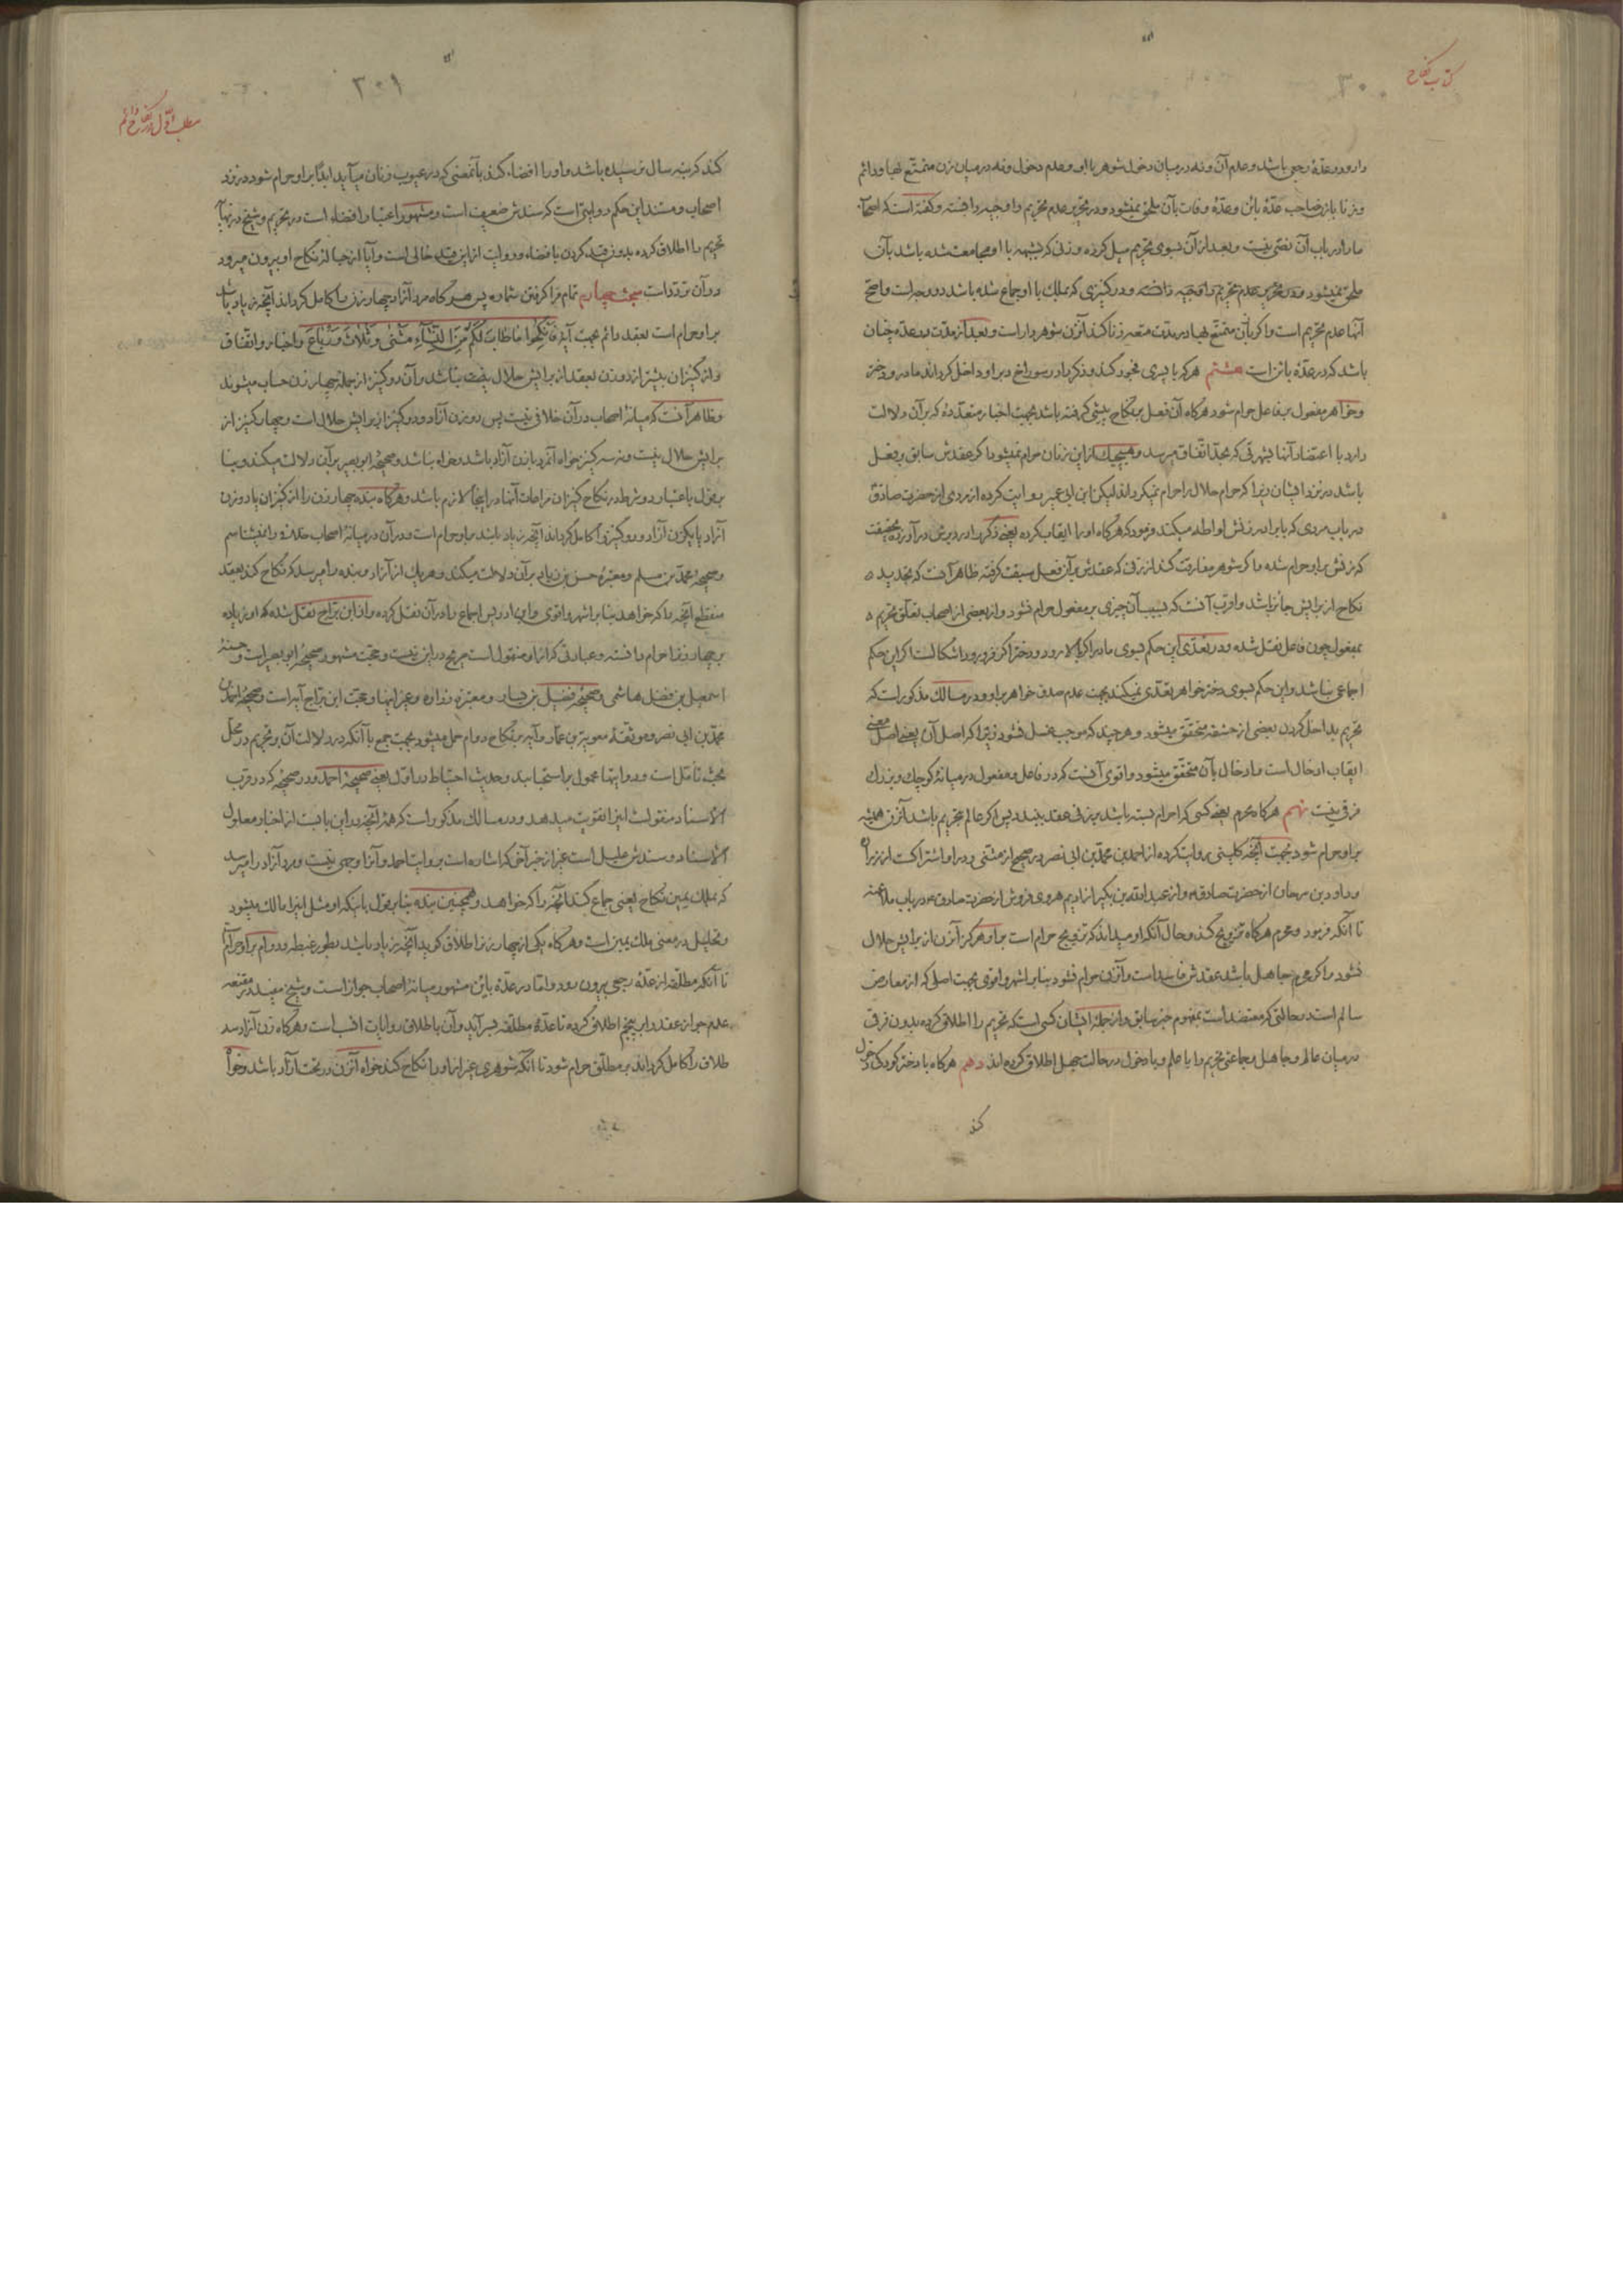 کتاب نکاح
٣٠٠
دارد و در عدّهٔ رجعی باشد و عدم آن و نه در میان دخول شوهر با او و عدم دخول و نه در میان زن متمتّع بها و دائم
و زنا با زن صاحب عدّهٔ بائن و عدّهٔ وفات بآن ملحق نمیشود و در تحریر عدم تحریم را وجیه دانسته و گفته است که اصحاب
ما را در باب آن نصّی نیست و بعد از آن بسوی تحریم میل کرده و زنی که بشبهه با او مجامعت شده باشد بآن
ملحق نمیشود و در تحریر عدم تحریم را وجیه دانسته و در کنیزی که بملک با او جماع شده باشد دو وجه است و اصحّ
آنها عدم تحریم است و اگر با زن متمتّع بها در مدّت متعه زنا کند آنزن شوهردار است و بعد از مدّت در عدّه چنان
باشد که در عدّهٔ بائن است هشتم هرکه با پسری فجور کند و ذکر را در سوراخ دبر او داخل گرداند مادر و دختر
و خواهر مفعول بر فاعل حرام شود هرگاه آن فعل بر نکاح پیشی گرفته باشد بجهت اخبار متعدّده که بر آن دلالت
دارد با اعتضاد آنها بشهرتی که بحدّ اتّفاق میرسد و هیچیک از این زنان حرام نمیشود اگر عقدش سابق بر فعل
باشد در نزد ایشان زیرا که حرام حلال را حرام نمیگرداند لیکن ابن ابی عمیر روایت کرده از مردی از حضرت صادق
در باب مردی که با برادر زنش لواطه میکند فرمود که هرگاه او را ایقاب کرده یعنی ذکر را در دبرش در آورده بحقیقت
که زنش بر او حرام شده و اگر شوهر مفارقت کند از زنی که عقدش بر آن فعل سبقت گرفته ظاهر آنست که تجدید
نکاح از برایش جائز باشد و اقرب آنست که بسبب آن چیزی بر مفعول حرام نشود و از بعضی از اصحاب تعلّق تحریم
بمفعول چون فاعل نقل شده و در تعدّی این حکم بسوی مادر اگر بالا رود و دختر اگر فرو رود اشکالست اگر این حکم
اجماعی نباشد و این حکم بسوی دختر خواهر تعدّی نمیکند بجهت عدم صدق خواهر بر او و در مسالک مذکور است که
تحریم بداخل کردن بعضی از حشفه متحقّق میشود و هر چند که موجب غسل نشود زیرا که اصل آن یعنی اصل معنی
ایقاب ادخال است و ادخال بآن متحقّق میشود و اقوی آنست که در فاعل و مفعول در میانهٔ کوچک و بزرگ
فرقی نیست نهم هرگاه محرم یعنی کسی که احرام بسته باشد بر زنی عقد ببندد پس اگر عالم بتحریم باشد آنزن همیشه
بر او حرام شود بجهت آنچه کلینی روایت کرده از احمد بن محمّد بن ابی نصر در صحیح از مثنّی و در او اشتراکست از زراره
و داود بن سرحان از حضرت صادق و از عبدالله بن بکیر از ادیم هروی فروش از حضرت صادق در باب ملاعنه
تا آنکه فرمود و محرم هرگاه تزویج کند و حال آنکه او میداند که تزویج حرام است بر او هرگز آنزن از برایش حلال
نشود و اگر محرم جاهل باشد عقدش فاسد است و آنزن حرام نشود بنابر اشهر و اقوی بجهت اصلی که از معارض
سالم است در حالتی که معتضد است بمفهوم خبر سابق و از جملهٔ ایشان کسی است که تحریم را اطلاق کرده بدون فرق
در میان عالم و جاهل و جماعتی تحریم را با علم و با دخول در حالت جهل اطلاق کرده‌اند دهم هرگاه با دختر کودکی دخول
کند
مطلب اوّل در نکاح دائم
٣٠١
کند که بنه سال نرسیده باشد و او را افضاء کند بآنمعنی که در عیوب زنان میآید ابدًا بر او حرام شود در نزد
اصحاب و مستند این حکم روایتی است که سندش ضعیف است و مشهور اعتبار افضاء است در تحریم و شیخ در نهایه
تحریم را اطلاق کرده بدون قید کردن بافضاء و روایت از این قید خالی است و آیا از حبالهٔ نکاح او بیرون میرود
در آن تردّد است مبحث چهارم تمام فرا گرفتن شماره پس هرگاه مرد آزاد چهار زن را کامل گرداند آنچه زیاد باشد
بر او حرام است بعقد دائم بجهت آیهٔ فَانْکِحُوا مَا طَابَ لَکُمْ مِنَ النِّسَآءِ مَثْنَی وَ ثُلَاثَ وَ رُبَاعَ و اخبار و اتّفاق
و از کنیزان بیشتر از دو زن بعقد از برایش حلال نیست بناشد و آن دو کنیز از جملهٔ چهار زن حساب میشوند
و ظاهر آنست که میانهٔ اصحاب در آن خلافی نیست پس دو زن آزاد و دو کنیز از برایش حلال است و چهار کنیز از
برایش حلال نیست و نه سه کنیز خواه آنکه با زن آزاد باشد و خواه نباشد و صحیحهٔ ابو بصیر بر آن دلالت میکند و بنا
بر قول باعتبار دو شرط در نکاح کنیزان مراعات آنها در اینجا لازم باشد و هرگاه بنده چهار زن را از کنیزان یا دو زن
آزاد یا یکزن آزاد و دو کنیز را کامل گرداند آنچه زیاد باشد بر او حرام است و در آن در میانهٔ اصحاب خلاف را نمیشناسم
و صحیحهٔ محمّد بن مسلم و معتبرهٔ حسن بن زیاد بر آن دلالت میکند و هر یک از آزاد و بنده را میرسد که نکاح کند بعقد
منقطع آنچه را که خواهد بنابر اشهر و اقوی و ابن ادریس اجماع را در آن نقل کرده و از ابن برّاج نقل شده که او زیاده
بر چهار زنرا حرام دانسته و عبارتی که از او منقول است صریح در این نیست و حجّت مشهور صحیحهٔ ابو بصیر است و حسنهٔ
اسمعیل بن فضل هاشمی و صحیحهٔ فضیل بن یسار و معتبرهٔ زراره و غیر اینها و حجّت ابن برّاج آیه است و صحیحهٔ احمد بن
محمّد بن ابی نصر و موثّقهٔ معویة بن عمّار و آیه بر نکاح دوام حمل میشود بجهت جمع با آنکه در دلالت آن بر تحریم در محلّ
بحث تأمّل است و روایتها محمول بر استحبابند و حدیث احتیاط در اوّل یعنی صحیحهٔ احمد و در صحیحهٔ که در قرب
الاسناد منقولست اینرا تقویت میدهد و در مسالک مذکور است که همهٔ آنچه در این بابست از اخبار معلول
الاسناد و سندش علیل است غیر از خبر آخر که اشاره است بروایت احمد و آنرا وجهی نیست و مرد آزاد را میرسد
که بملک یمین نکاح یعنی جماع کند آنچه را که خواهد و همچنین بنده بنابر قول باینکه او مثل اینرا مالک میشود
و تحلیل در معنی ملک یمین است و هرگاه یکی از چهار زنرا طلاق گوید آنچه زیاد باشد بطور غبطه و دوام بر او حرام است
تا آنکه مطلّقه از عدّهٔ رجعی بیرون رود و امّا در عدّهٔ بائن مشهور میانهٔ اصحاب جواز است و شیخ مفید در مقنعه
عدم جواز عقد را بر پنجم اطلاق کرده تا عدّهٔ مطلّقه بسر آید و آن باطلاق روایات انسب است و هرگاه زن آزاد سه
طلاق را کامل گرداند بر مطلّق حرام شود تا آنکه شوهری غیر از او را نکاح کند خواه آنزن در تحت آزاد باشد و خواه